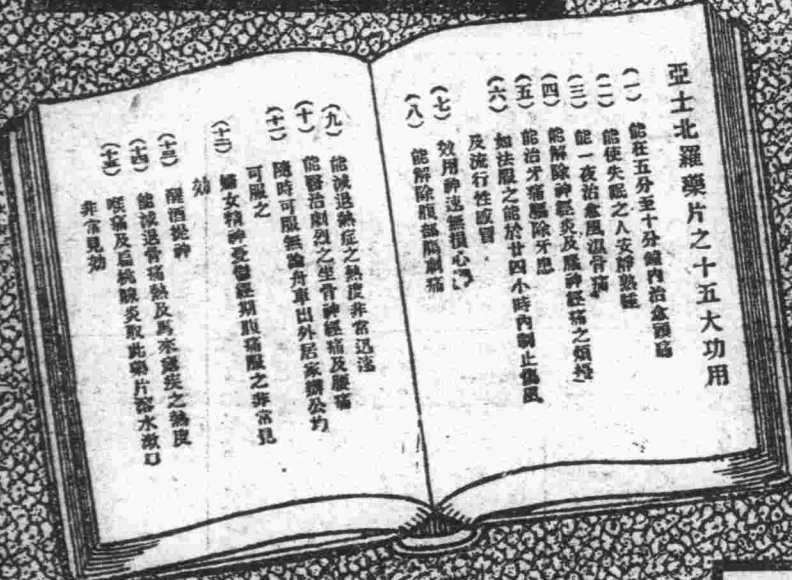 亞士北羅藥片之十五大功用
(一) 能在五分至十分鐘內治愈頭痛
(二) 能使失眠之人安靜熟睡
(三) 能一夜治愈風濕骨痛
(四) 能解除神經炎及腦神經痛之煩擾
(五) 能治牙痛驅除牙患
(六) 如法服之能於廿四小時內制止傷風
及流行性感冒
(七) 效用神速無損心
(八) 能解除頭部陣劇痛
(九) 能減退熱症之熱度非常迅速
(十) 能醫治劇烈之坐骨神經痛及腰痛
(十一) 隨時可服無論舟車出外居家辦公均
可服之
(十二) 婦女精神憂鬱經期腹痛服之非常見
効
(十三) 醒酒提神
(十四) 能減退骨痛熱及馬來瘧疾之熱度
(十五) 喉痛及扁桃腺炎取此藥片溶水漱口
非常見効